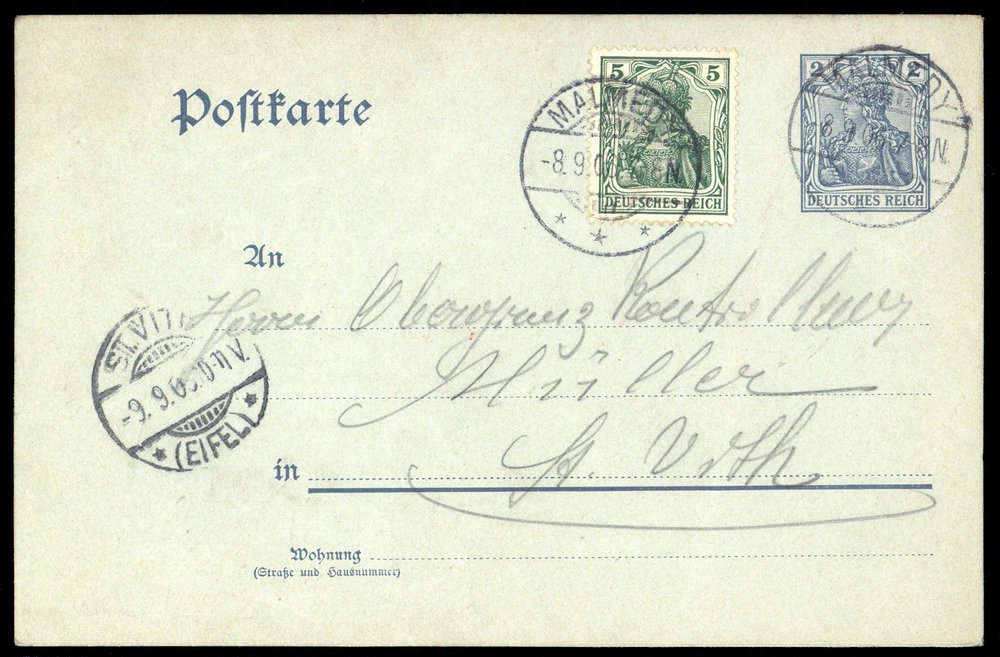 Postkarte
5 5
DEUTSCHES REICH
MALMEDY
-8.9.06 N.
* * *
2 2
DEUTSCHES REICH
MALMEDY
8.9.06 8N.
An
Herrn Obergrenz Kontrolleur
Müller
in St. Vith
ST. VITH
-9.9.06.10-11V.
* (EIFEL) *
Wohnung
(Straße und Hausnummer)